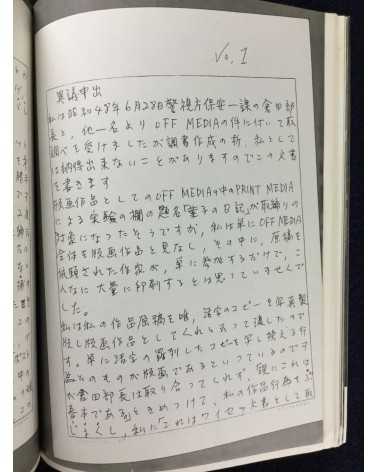 No. 1
異議申出
私は昭和48年6月28日警視庁保安一課の倉田部
長と、他一名よりOFF MEDIAの件に付いて取
調べを受けましたが調書作成の折、私として
は納得出来ないことがありますのでこの文書
を書きます
版画作品としてのOFF MEDIAの中のPRINT MEDIA
による実験の欄の題名「葉子の日記」が取締りの
対象になったそうですが、私は単にOFF MEDIA
全体を版画作品と見なし、その中に、原稿を
依頼された作家が、単に参加するだけで、こ
んなに大量に印刷するとは思っていませんで
した。
私は私の作品原稿を唯、活字のコピーを写真製
版し版画作品としてくれと云って渡したので
す。単に活字の羅列したコピーを字し換える行
為そのものが版画であるといっているのです
が倉田部長は取り合ってくれず、観にこれは
春本である」ときめつけて、私の作品行為を
じょくし、私に「これはワイセツ文書として